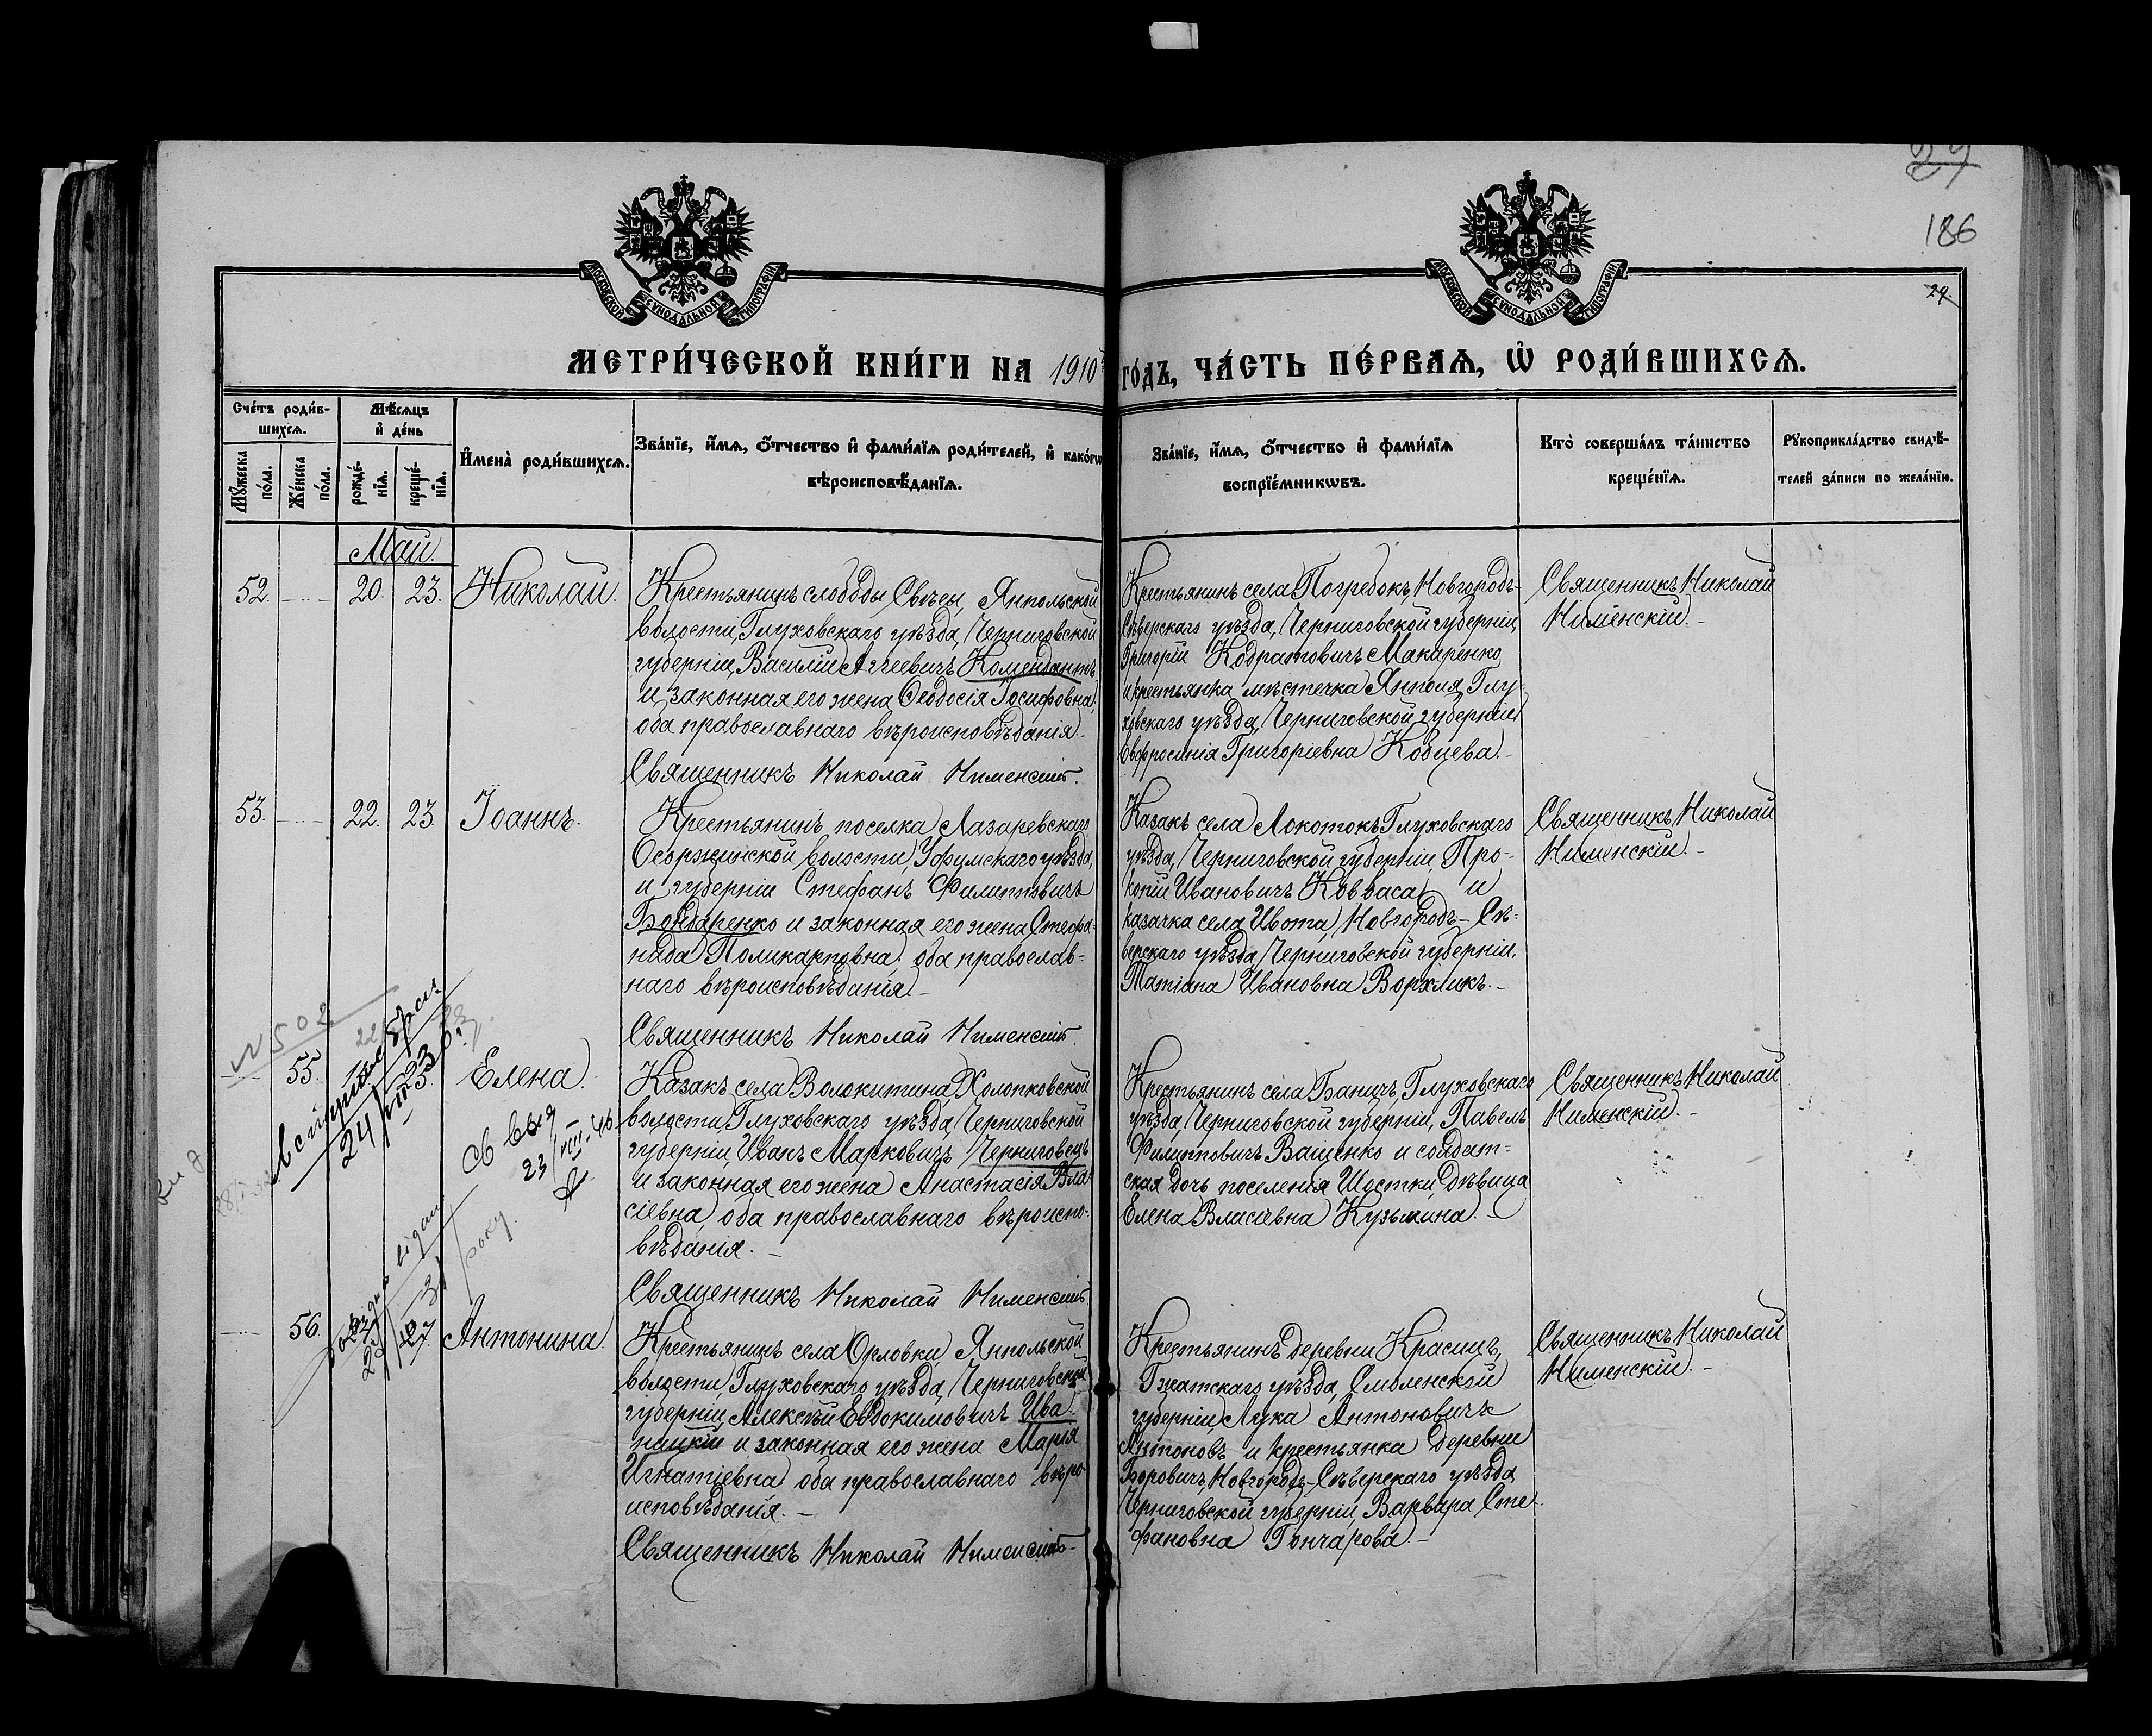 29
186
МОСКОВСКОЙ СѴНОДАЛЬНОЙ ТИПОГРАФІИ
МОСКОВСКОЙ СѴНОДАЛЬНОЙ ТИПОГРАФІИ
29.
МЕТРИ́ЧЕСКОЙ КНИ́ГИ НА 1910 ГО́ДЪ, ЧА́СТЬ ПЕ́РВАѦ, Ѽ РОДИ́ВШИХСѦ.
Сче́тъ роди́в-
шихсѧ.
Мѣ́сѧцъ
и҆ де́нь
Мꙋ́жеска
по́ла.
Же́нска
по́ла.
рожде́-
нїѧ.
креще́-
нїѧ.
И҆мена̀ роди́вшихсѧ.
Зва́нїе, и҆́мѧ, ѻ҆́тчество и҆ фами́лїѧ роди́телей, и҆ како́гѡ
вѣроисповѣ́данїѧ.
Зва́нїе, и҆́мѧ, ѻ҆́тчество и҆ фами́лїѧ
воспрїе́мникѡвъ.
Кто̀ соверша́лъ та́инство
креще́нїѧ.
Рꙋкоприкла́дство свидѣ́-
телей за́писи по жела́нїю.
Май.
52. 20. 23. Николай.
Крестьянинъ слободы Свѣсы, Янпольской
волости, Глуховскаго уѣзда, Черниговской
губерніи, Василій Аггеевичъ Комендантъ
и законная его жена Ѳеодосія Іосифовна,
оба православнаго вѣроисповѣданія.
Священникъ Николай Нименскій.
Крестьянинъ села Погребокъ, Новгородъ-
Сѣверскаго уѣзда, Черниговской губерніи,
Григорій Кодратовичъ Макаренко
и крестьянка мѣстечка Янполя, Глу-
ховскаго уѣзда, Черниговской губерніи
Евфросинія Григоріевна Ковцева.
Священникъ Николай
Нименскій.
53. 22. 23. Іоаннъ.
Крестьянинъ поселка Лазаревскаго
волости, Уфимскаго уѣзда,
и губерніи Стефанъ Филипповичъ
Бондаренко и законная его жена Стефа-
нида Поликарповна, оба православ-
наго вѣроисповѣданія.
Священникъ Николай Нименскій.
Казакъ села Локотокъ Глуховскаго
уѣзда, Черниговской губерніи, Про-
копій Ивановичъ Ковбаса и
казачка села Ивота, Новгородъ-Сѣ-
верскаго уѣзда, Черниговской губерніи,
Татіана Ивановна Ворхликъ.
Священникъ Николай
Нименскій.
N 502
55. 23. Елена.
24/VII 53
23/VIII. 46
Казакъ села Волокитина, Холопковской
волости, Глуховскаго уѣзда, Черниговской
губерніи, Иванъ Марковичъ Черниговецъ
и законная его жена Анастасія Вла-
сіевна, оба православнаго вѣроиспо-
вѣданія.
Священникъ Николай Нименскій.
Крестьянинъ села Баничъ, Глуховскаго
уѣзда, Черниговской губерніи, Павелъ
Филипповичъ Ващенко и солдат-
ская дочь поселенія Шостки, дѣвица
Елена Власіевна Кузьмина.
Священникъ Николай
Нименскій.
року.
56. 27. Антонина.
Крестьянинъ села Орловки, Янпольской
волости, Глуховскаго уѣзда, Черниговской
губерніи, Алексѣй Евдокимовичъ Ива-
ницкій и законная его жена Марія
Игнатіевна, оба православнаго вѣро-
исповѣданія.
Священникъ Николай Нименскій.
Крестьянинъ деревни Красицъ,
Гжатскаго уѣзда, Смоленской
губерніи, Лука Антоновичъ
Антоновъ и крестьянка деревни
Боровичъ, Новгородъ-Сѣверскаго уѣзда
Черниговской губерніи, Варвара Сте-
фановна Гончарова.
Священникъ Николай
Нименскій.